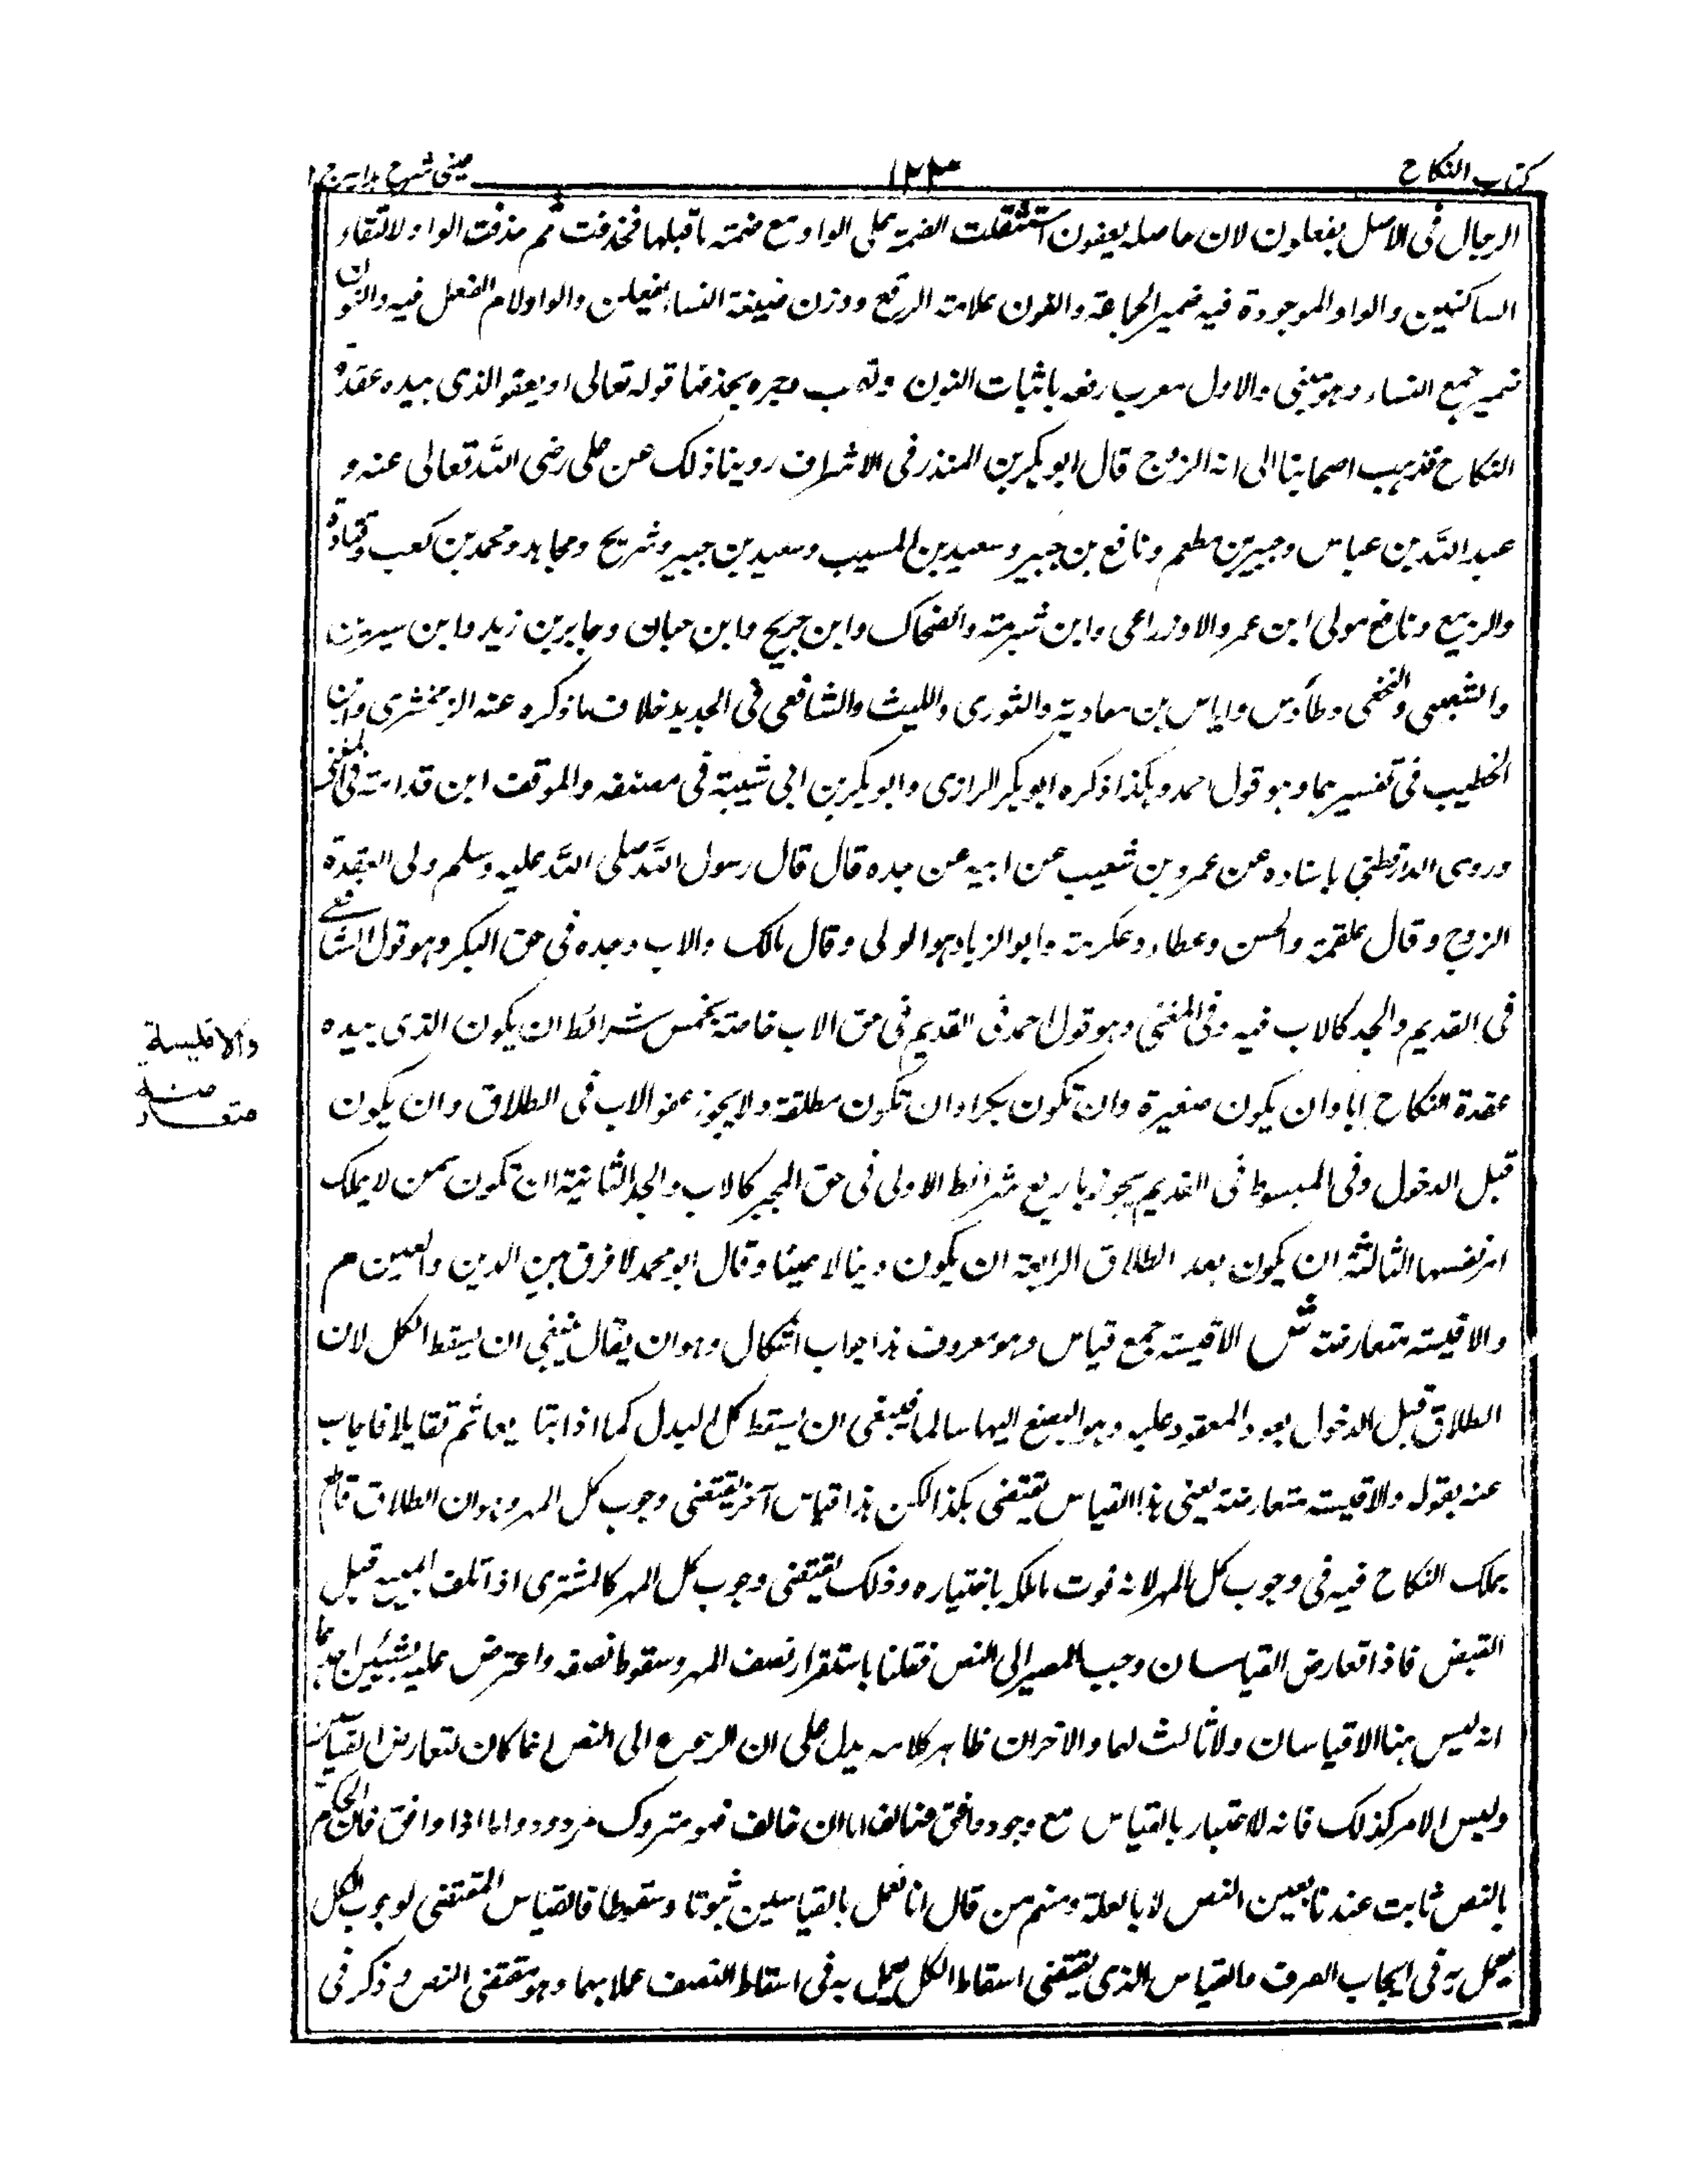 كتاب النكاح
١٢٣
عينى شرح هدايه ج ١
الرجال فى الاصل يفعلون لان ما صله يعفون استثقلت الضمة على الواو مع ضمته ما قبلها فحذفت ثم حذفت الواو لالتقاء
الساكنين والواو الموجودة فيه ضمير الجماعة والنون علامة الرفع ووزن صيغة النساء يفعلن والواو لام الفعل فيه والنون
ضمير جمع النساء وهو مبنى والاول معرب رفعه باثبات النون ونصبه وجره بحذفها قوله تعالى او يعفو الذى بيده عقدة
النكاح فذهب اصحابنا الى انه الزوج قال ابو بكر بن المنذر فى الاشراف روينا ذلك عن على رضى الله تعالى عنه و
عبد الله بن عباس وجبير بن مطعم ونافع بن جبير وسعيد بن المسيب وسعيد بن جبير وشريح ومجاهد ومحمد بن كعب وقتادة
والربيع ونافع مولى ابن عمر والاوزاعى وابن شبرمة والضحاك وابن جريج وابن حبان وجابر بن زيد وابن سيرين
والشعبى والنخعى وطاؤس واياس بن معاوية والثورى والليث والشافعى فى الجديد خلاف ما ذكره عنه الزمخشرى وابن
الخطيب فى تفسيرهما وهو قول احمد وهكذا ذكره ابو بكر الرازى وابو بكر بن ابى شيبة فى مصنفه والموفق ابن قدامة فى المغنى
وروى الدارقطنى باسناده عن عمرو بن شعيب عن ابيه عن جده قال قال رسول الله صلى الله عليه وسلم ولى العقدة
الزوج وقال علقمة والحسن وعطاء وعكرمة وابو الزناد هو الولى وقال مالك والاب وحده فى حق البكر وهو قول الشافعى
فى القديم والجد كالاب فيه وفى المغنى وهو قول احمد فى القديم فى حق الاب خاصة بخمس شرائط ان يكون الذى بيده
عقدة النكاح ابا وان يكون صغيرة وان تكون بكرا وان تكون مطلقة ولا يجوز عفو الاب فى الطلاق وان يكون
قبل الدخول وفى المبسوط فى القديم يجوز باربع شرائط الاولى فى حق المجبر كالاب والجد الثانية ان تكون ممن لا يملك
امر نفسها الثالثة ان يكون بعد الطلاق الرابعة ان يكون دينا لا عينا وقال ابو محمد لا فرق بين الدين والعين م
والاقيسة متعارضة ش الاقيسة جمع قياس وهو معروف هذا جواب اشكال وهو ان يقال ينبغى ان يسقط الكل لان
الطلاق قبل الدخول يعود المعقود عليه وهو البضع اليها سالما فينبغى ان يسقط كل البدل كما اذا تبايعا ثم تقايلا فاجاب
عنه بقوله والاقيسة متعارضة يعنى هذا القياس يقتضى هكذا لكن هذا قياس آخر يقتضى وجوب كل المهر وهو ان الطلاق قاطع
بملك النكاح فيه فى وجوب كل المهر لانه فوت ما ملكه باختياره وذلك يقتضى وجوب كل المهر كالمشترى اذا اتلف المبيع قبل
القبض فاذا تعارض القياسان وجب المصير الى النص فقلنا باستقرار نصف المهر وسقوط نصفه واعترض عليه بشيئين احدهما
انه ليس هنا الا قياسان ولا ثالث لهما والآخر ان ظاهر كلامه يدل على ان الرجوع الى النص انما كان لتعارض القياسين
وليس الامر كذلك فانه لا اعتبار بالقياس مع وجود موافق مخالفا اما ان خالف فهو متروك مردود واما اذا وافق فان الحكم
بالنص ثابت عندنا بعين النص لا بالعلة ومنهم من قال انا نعمل بالقياسين ثبوتا وسقوطا فالقياس المقتضى لوجوب الكل
يعمل به فى ايجاب الصرف والقياس الذى يقتضى اسقاط الكل يعمل به فى اسقاط النصف عملا بهما وهو مقتضى النص وذكر فى
والاقيسة
متعارضة